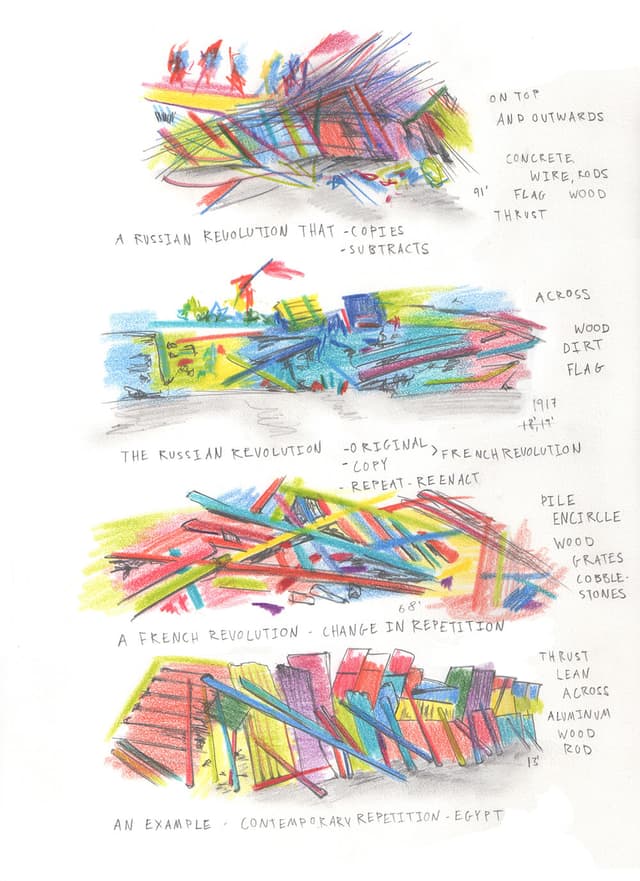 ON TOP
AND OUTWARDS
CONCRETE
WIRE, RODS
91' FLAG WOOD
THRUST
A RUSSIAN REVOLUTION THAT -COPIES
-SUBTRACTS
ACROSS
WOOD
DIRT
FLAG
1917
18', 19'
THE RUSSIAN REVOLUTION -ORIGINAL > FRENCH REVOLUTION
- COPY
- REPEAT - REENACT
PILE
ENCIRCLE
WOOD
GRATES
COBBLE-
STONES
68'
A FRENCH REVOLUTION - CHANGE IN REPETITION
THRUST
LEAN
ACROSS
ALUMINUM
WOOD
ROD
13'
AN EXAMPLE - CONTEMPORARY REPETITION - EGYPT